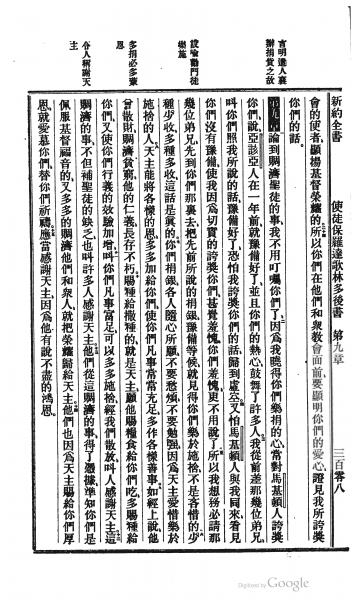 新約全書 使徒保羅達歌林多後書 第九章 三百零八
會的使者、顯揚基督榮耀的。所以你們在他們和衆教會面前、要顯明你們的愛心、證見我所誇獎
你們的話。
言明遣人襄
辦捐貲之故
第九章 論到賙濟聖徒的事、我不用叮囑你們了。因爲我曉得你們樂捐的心、常對馬基頓人誇獎
你們說、亞該亞人在一年前就豫備好了、並且你們的熱心鼓舞了許多人。我從前差那幾位弟兄、
叫你們照我所說的話豫備好了、恐怕我誇獎你們的話歸到虛空。又怕馬基頓人與我同來、看見
你們沒有豫備、使我因爲切實的誇獎你們、甚覺羞愧、你們羞愧、更不用說了。所以我想務必請那
幾位弟兄、先到你們那裏去、把先前所說的捐銀、豫備等候、就見得你們樂於施捨、不是吝惜的。少
設喻勸門徒
樂施
種少收、多種多收、這話是眞的。你們捐銀、各人隨心所願、不要愁煩、不要勉强、因爲天主愛惜樂於
施捨的人。天主能將各樣的恩多多加給你們、使你們凡事常常充足、多作各樣善事。如經上說、他
多捐必多蒙
恩
曾散財賙濟貧窮、他的仁義長存不朽。賜種給撒種的、就是天主、願他賜糧食給你們吃、多賜種給
你們、又使你們行義的效驗加增。叫你們凡事富足、可以多多施捨、經我們散放、叫人感謝天主。這
令人稱謝天
主
賙濟的事、不但補聖徒的缺乏、也叫許多人感謝天主。他們從這賙濟的事、得了憑據、準知你們是
佩服基督福音的、又多多的賙濟他們和衆人、就把榮耀歸給天主。他們也因爲天主賜給你們厚
恩、就愛慕你們、替你們祈禱。應當感謝天主、因爲他有說不盡的鴻恩。
Digitized by Google